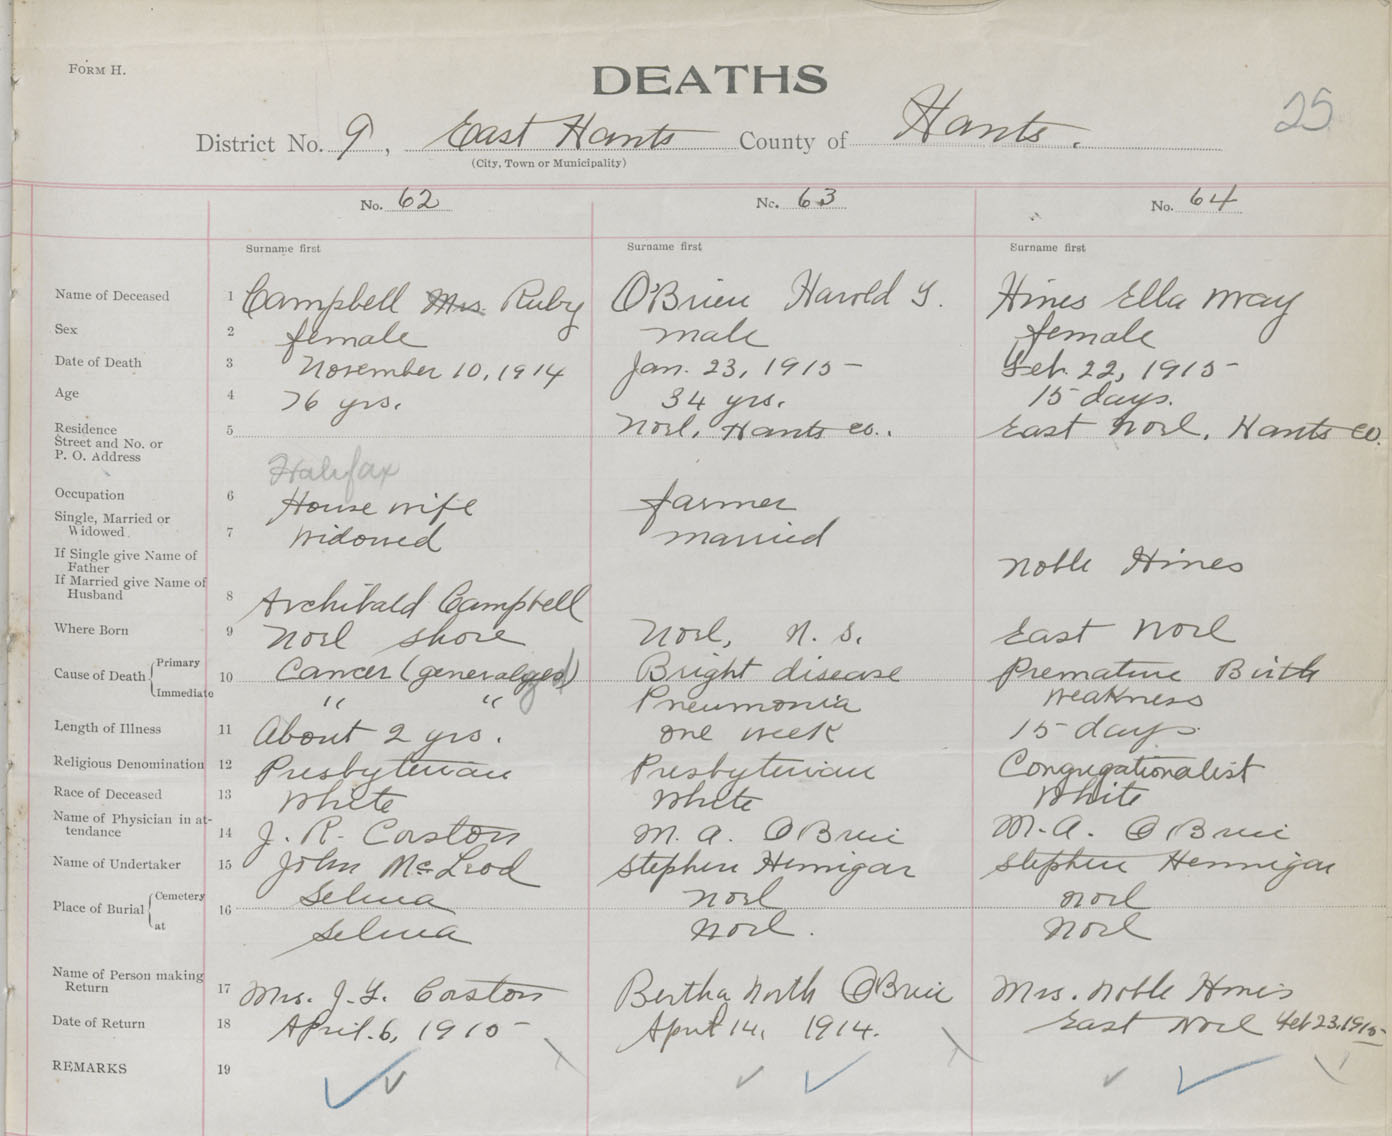 FORM H.
DEATHS
25
District No. 9, East Hants County of Hants.
(City, Town or Municipality)
No. 62 No. 63 No. 64
Surname first Surname first Surname first
Name of Deceased 1 Campbell Mrs. Ruby O'Brien Harold Y. Hines Ella May
Sex 2 female male female
Date of Death 3 November 10, 1914 Jan. 23, 1915 Feb. 22, 1915
Age 4 76 yrs. 34 yrs. 15 days.
Residence 5 Noel, Hants Co. East Noel, Hants Co.
Street and No. or
P. O. Address
Halifax
Occupation 6 House wife farmer
Single, Married or
Widowed 7 Widowed married
If Single give Name of
Father Noble Hines
If Married give Name of
Husband 8 Archibald Campbell
Where Born 9 Noel Shore Noel, N. S. East Noel
Cause of Death Primary 10 Cancer (generalyzed) Bright disease Premature Birth
Immediate " " Pneumonia weakness
Length of Illness 11 About 2 yrs. one week 15 days
Religious Denomination 12 Presbyterian Presbyterian Congregationalist
Race of Deceased 13 White White White
Name of Physician in at-
tendance 14 J. R. Corston M. A. O'Brien M. A. O'Brien
Name of Undertaker 15 John McLeod Stephen Hennigar Stephen Hennigar
Place of Burial Cemetery 16 Selma Noel Noel
at Selma Noel. Noel
Name of Person making
Return 17 Mrs. J. Y. Corston Bertha North O'Brien Mrs. Noble Hines
Date of Return 18 April. 6, 1915 April 14, 1914. East Noel Feb 23, 1915
REMARKS 19